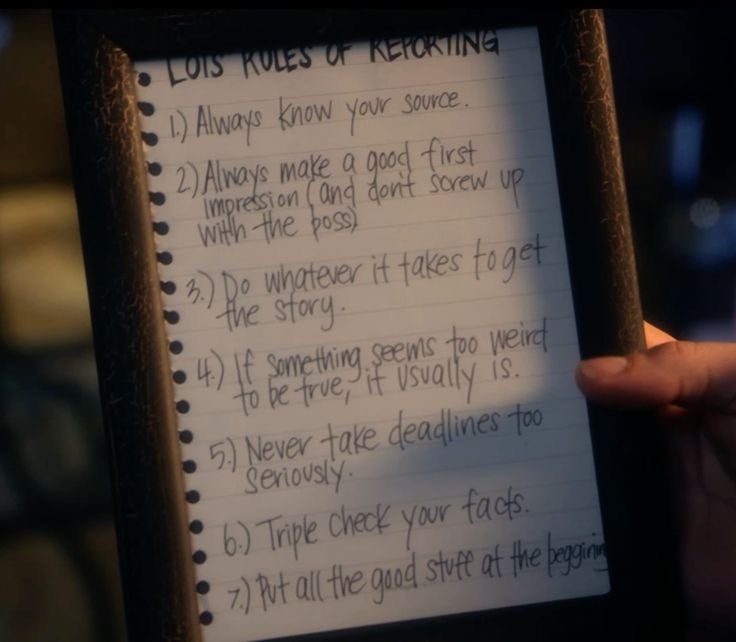 LOIS' RULES OF REPORTING
1.) Always know your source.
2) Always make a good first
impression (and don't screw up
with the boss)
3.) Do whatever it takes to get
the story.
4.) If something seems too weird
to be true, it usually is.
5.) Never take deadlines too
seriously.
6.) Triple check your facts.
7.) Put all the good stuff at the beggining